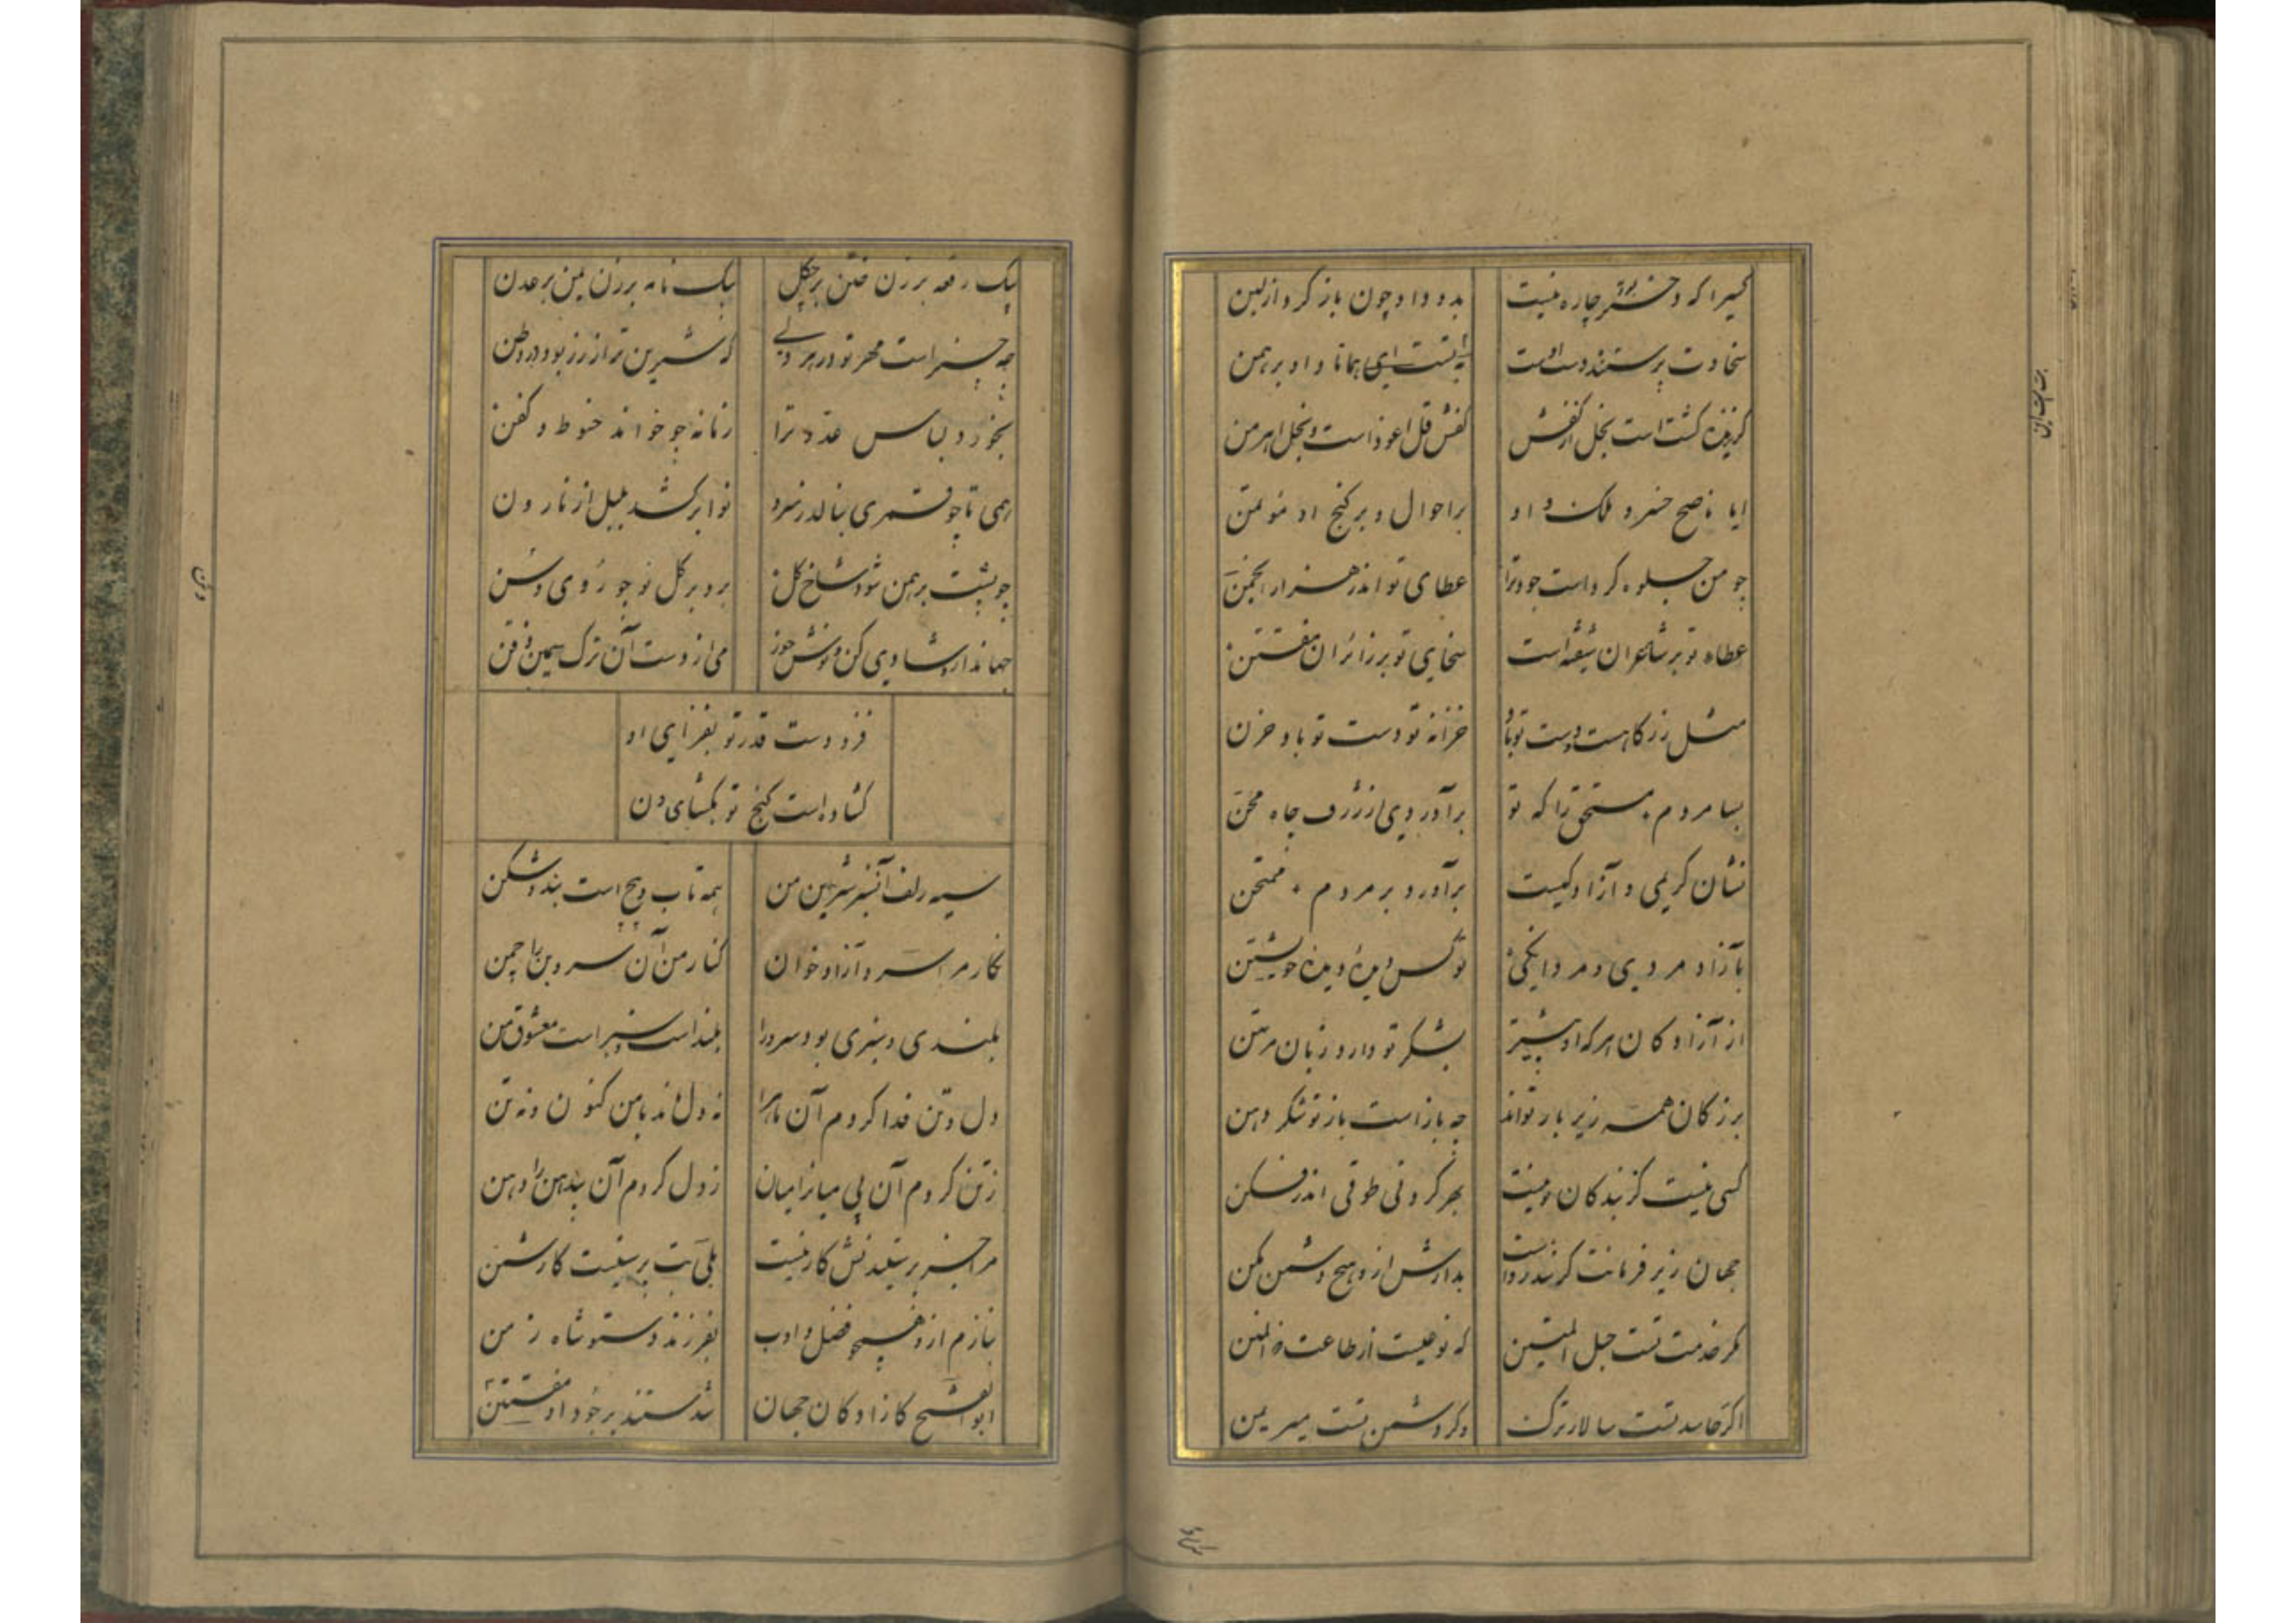 کسیرا که دختر بود چاره نیست    بدو داد چون باز کرد از لبن
سخاوت پرستنده دست اوست    همانا و او برهمن
گزیده کشت است بخل از کفش    کفش قل اعوذ است و بخل اهرمن
ایا ناصح خسرو ملک و او    بر احوال و بر کنج او مؤتمن
چو من جلوه کرد است جود ترا    عطای تو اندر هزار انجمن
عطاء تو بر شاعران شیفته است    سخای تو بر زائران مفتتن
مثل زر کاهست و دست تو باد    خزانه تو دست تو باد خزن
بسا مردم مستحق را که تو    برآوردی از ژرف چاه محن
نشان کریمی و آزادکیست    برآورد بر مردم ممتحن
بآزاد مردی و مردانکی    تو کس دیدهٔ دیدهٔ خویشتن
از آزادکان هرکه او بیشتر    بشکر تو دارد زبان مرتهن
بزرکان همه زیر بار تواند    چه باز است باز تو شکر دهن
کسی نیست کز بندکان تو نیست    بهر کردنی طوقی اندر فکن
جهان زیر فرمانت کرند رواست    بدارش ازو هیچ دشمن مکن
مکر خدمت تست حبل المتین    که نوعیست از طاعت ذو المنن
اکر حاسد تست سالار ترک    وکر دشمن تست میر یمن
بیک رقعه بر زن ختن بر چکل    بیک نامه بر زن یمن بر عدن
چه چیز است مهر تو در هر دلی    که شیرین تر از زر بود در وطن
بخور و لباس عدو ترا    زمانه چو خواند حنوط و کفن
همی تا چو قمری بنالد ز سرو    نوا برکشد بلبل از نارون
چو پشت برهمن شود شاخ کل    برد بر کل نو چو روی وسن
جهاندار و شادی کن و نوش خور    می از دست آن ترک سیمین ذقن
فزودست قدر تو بفزای او
کشاده است کنج تو بکشای دن
سیه زلف آن سرو سیمین من    همه تاب و پیچ است بند و شکن
نکار مرا سرو آزاد خوان    کنار من آن سروبن را چمن
بلندی و سبزی بود سرو را    بلند است و سبز است معشوق من
دل و تن فدا کردم آن ماه را    نه دل ماند با من کنون و نه تن
ز تن کردم آن بی میانرا میان    ز دل کردم آن بی دهن را دهن
مرا جز پرستیدنش کار نیست    بلی بت پرستیست کار شمن
بنازم ازو همچو فضل و ادب    بفرزند دستور شاه زمن
ابوالفتح کازادکان جهان    شدستند بر جود او مفتتن